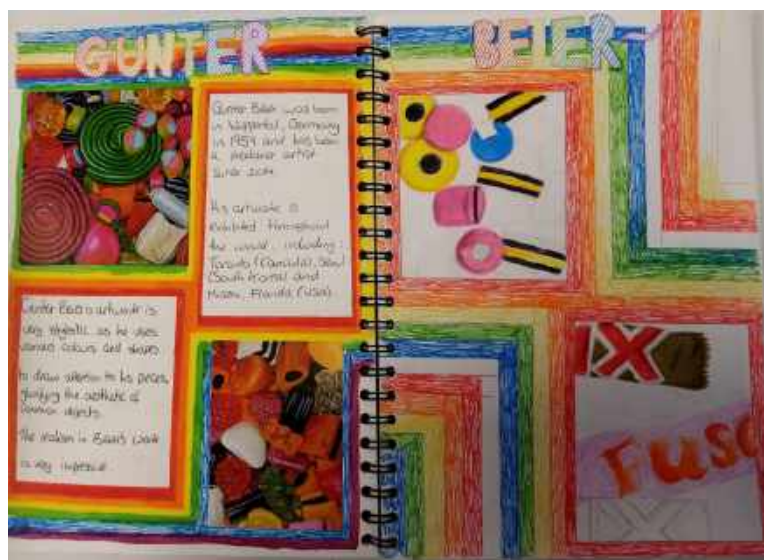 GUNTER
BEIER
Gunter Beier was born
in Wuppertal, Germany
in 1959 and has been
a freelance artist
since
His artwork is
exhibited throughout
the world including
Toronto (Canada), Seoul
(South Korea) and
Miami, Florida (USA).
Gunter Beier's artwork is
very as he uses
various colours and shapes
to draw attention to his pieces,
glorifying the aesthetic of
common objects.
The realism in Beier's work
is very impressive
Fus